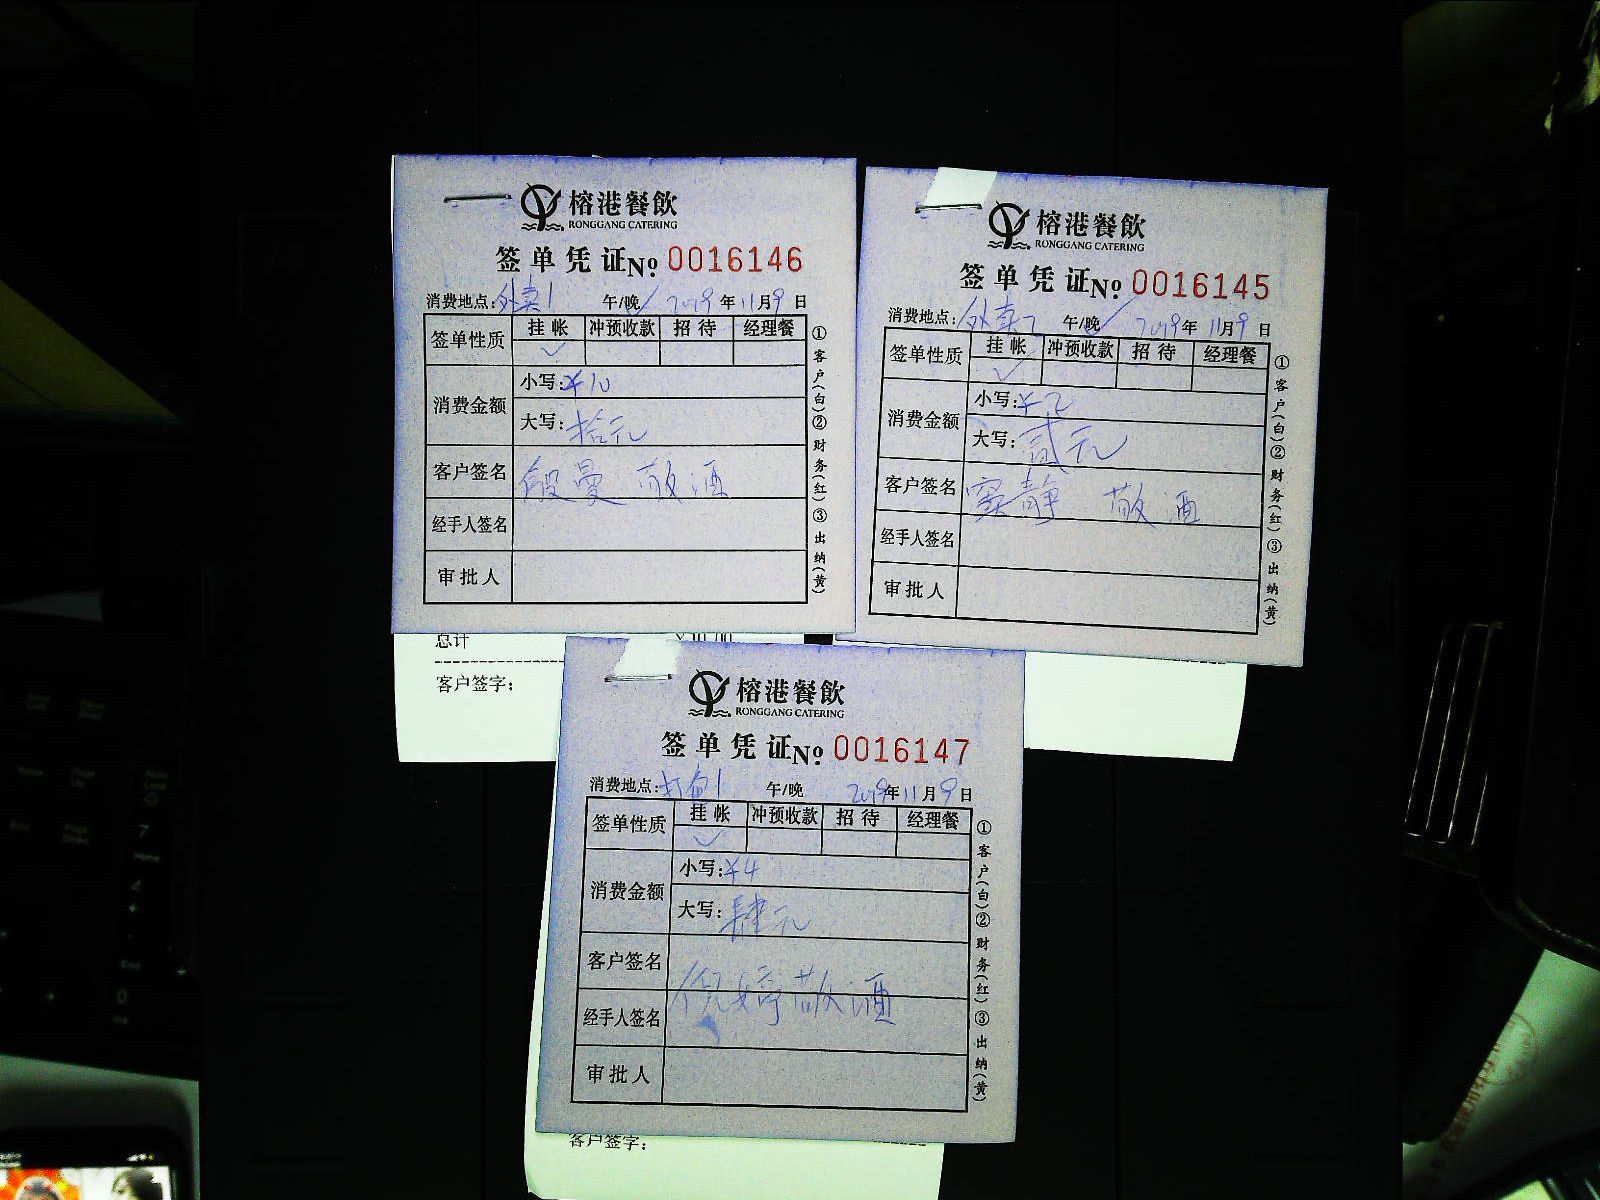 榕港餐飲
RONGGANG CATERING
签单凭证№ 0016146
消费地点:外卖1 午/晚✓ 2019年11月9日
签单性质 挂帐 冲预收款 招待 经理餐
✓
消费金额
小写:¥10
大写:拾元
客户签名 段曼 敬酒
经手人签名
审批人
①客户(白)②财务(红)③出纳(黄)
总计 ¥10.00
客户签字:
榕港餐飲
RONGGANG CATERING
签单凭证№ 0016145
消费地点:外卖2 午/晚✓ 2019年11月9日
签单性质 挂帐 冲预收款 招待 经理餐
✓
消费金额
小写:¥2
大写:贰元
客户签名 窦静 敬酒
经手人签名
审批人
①客户(白)②财务(红)③出纳(黄)
榕港餐飲
RONGGANG CATERING
签单凭证№ 0016147
消费地点:打包1 午/晚 2019年11月9日
签单性质 挂帐 冲预收款 招待 经理餐
✓
消费金额
小写:¥4
大写:肆元
客户签名 倪婷敬酒
经手人签名
审批人
①客户(白)②财务(红)③出纳(黄)
客户签字: